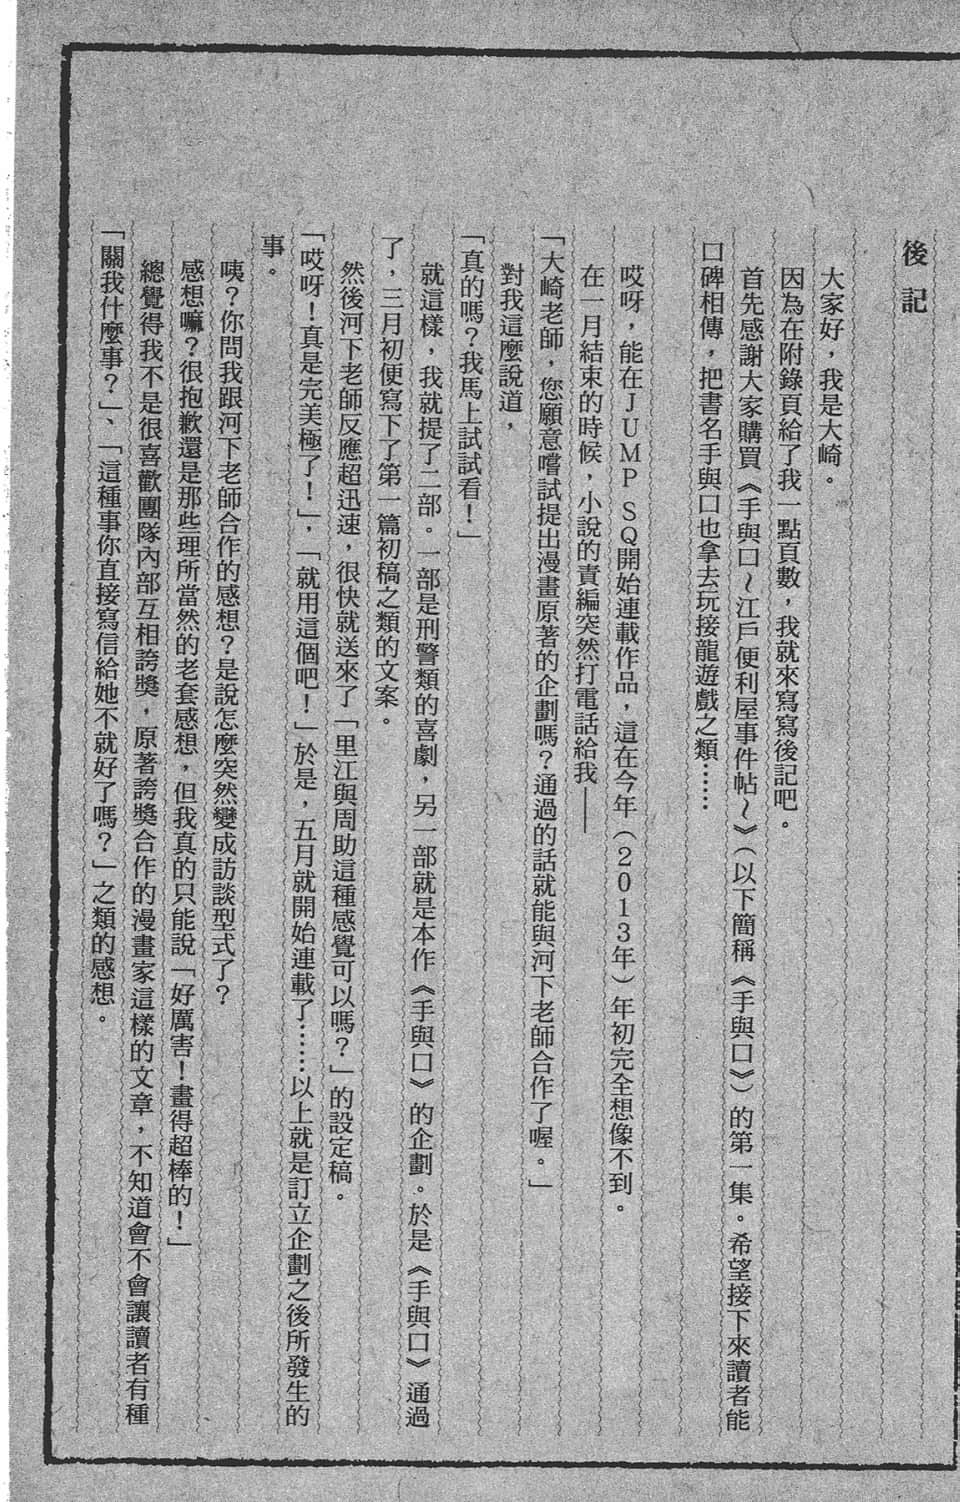 後記
大家好，我是大崎。
因為在附錄頁給了我一點頁數，我就來寫寫後記吧。
首先感謝大家購買《手與口～江戶便利屋事件帖～》（以下簡稱《手與口》）的第一集。希望接下來讀者能
口碑相傳，把書名手與口也拿去玩接龍遊戲之類……
哎呀，能在ＪＵＭＰ ＳＱ開始連載作品，這在今年（２０１３年）年初完全想像不到。
在一月結束的時候，小說的責編突然打電話給我——
「大崎老師，您願意嚐試提出漫畫原著的企劃嗎？通過的話就能與河下老師合作了喔。」
對我這麼說道，
「真的嗎？我馬上試試看！」
就這樣，我就提了二部。一部是刑警類的喜劇，另一部就是本作《手與口》的企劃。於是《手與口》通過
了，三月初便寫下了第一篇初稿之類的文案。
然後河下老師反應超迅速，很快就送來了「里江與周助這種感覺可以嗎？」的設定稿。
「哎呀！真是完美極了！」，「就用這個吧！」於是，五月就開始連載了……以上就是訂立企劃之後所發生的
事。
咦？你問我跟河下老師合作的感想？是說怎麼突然變成訪談型式了？
感想嘛？很抱歉還是那些理所當然的老套感想，但我真的只能說「好厲害！畫得超棒的！」
總覺得我不是很喜歡團隊內部互相誇獎，原著誇獎合作的漫畫家這樣的文章，不知道會不會讓讀者有種
「關我什麼事？」、「這種事你直接寫信給她不就好了嗎？」之類的感想。